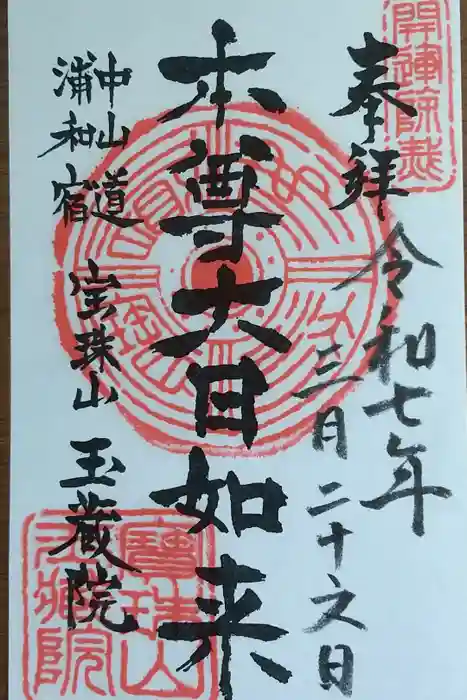 奉拝
令和七年
三月二十六日
本尊大日如来
中山道
浦和宿
宝珠山
玉蔵院
寶珠山
玉藏院